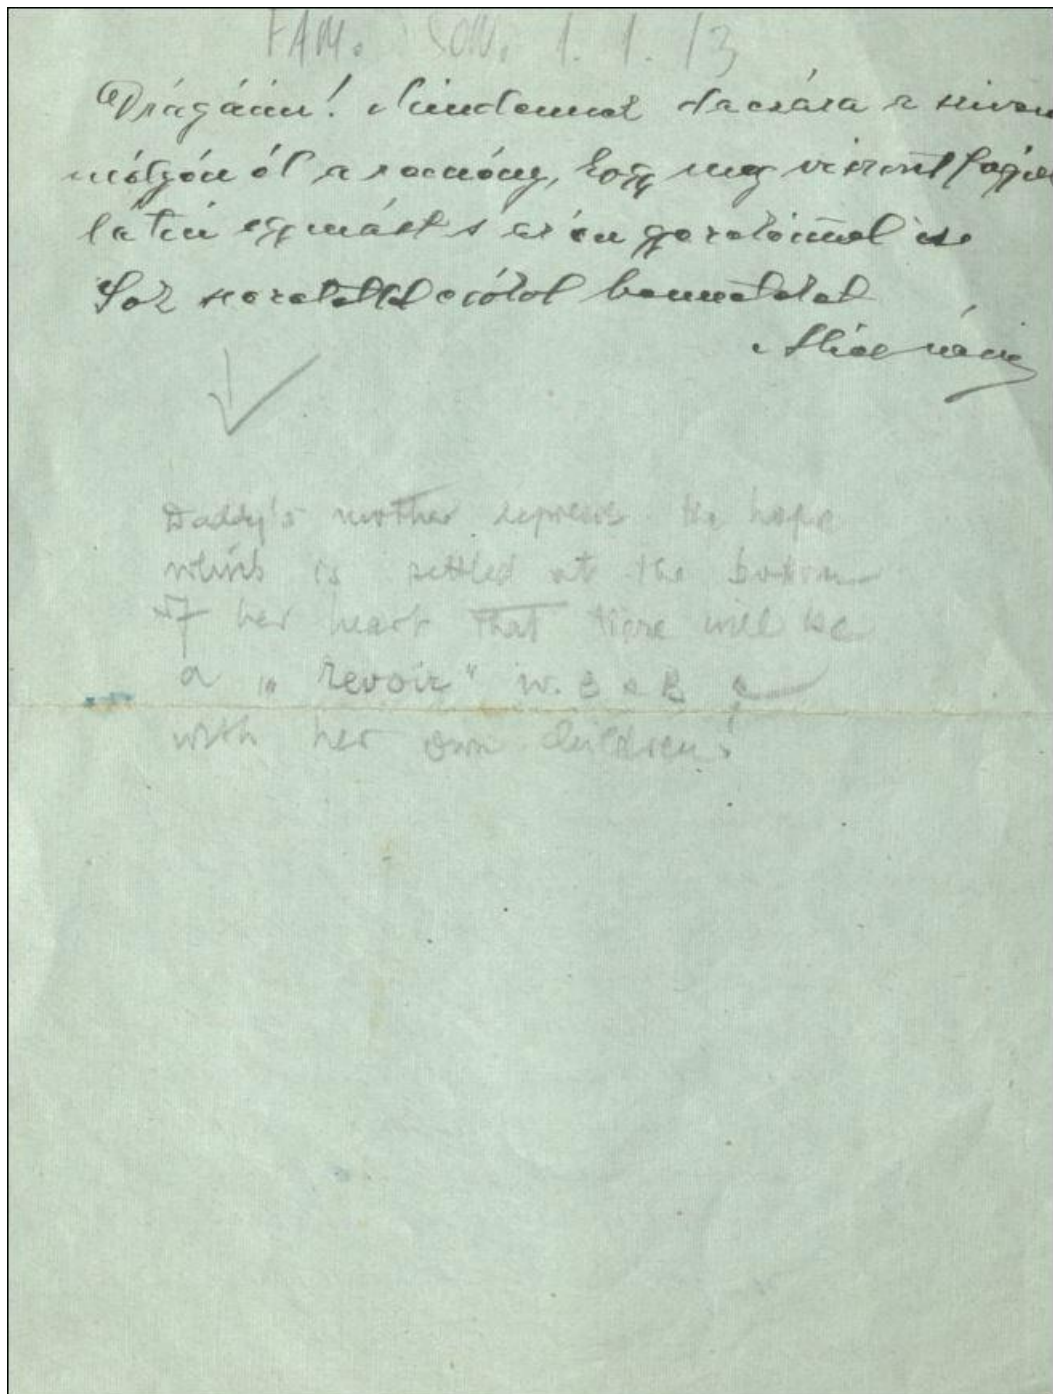 FAM. SON. 1. 1. 13
Drágáim! Mindennek dacára a szivem
mélyén él a remény, hogy meg viszont fogjuk
látni egymást s az én gyerekeimmel is
Sok szeretettel csókol benneteket
Daddy's mother express the hope
which is settled at the bottom
of her heart that there will be
a „revoir" w. E & B &
with her own children!